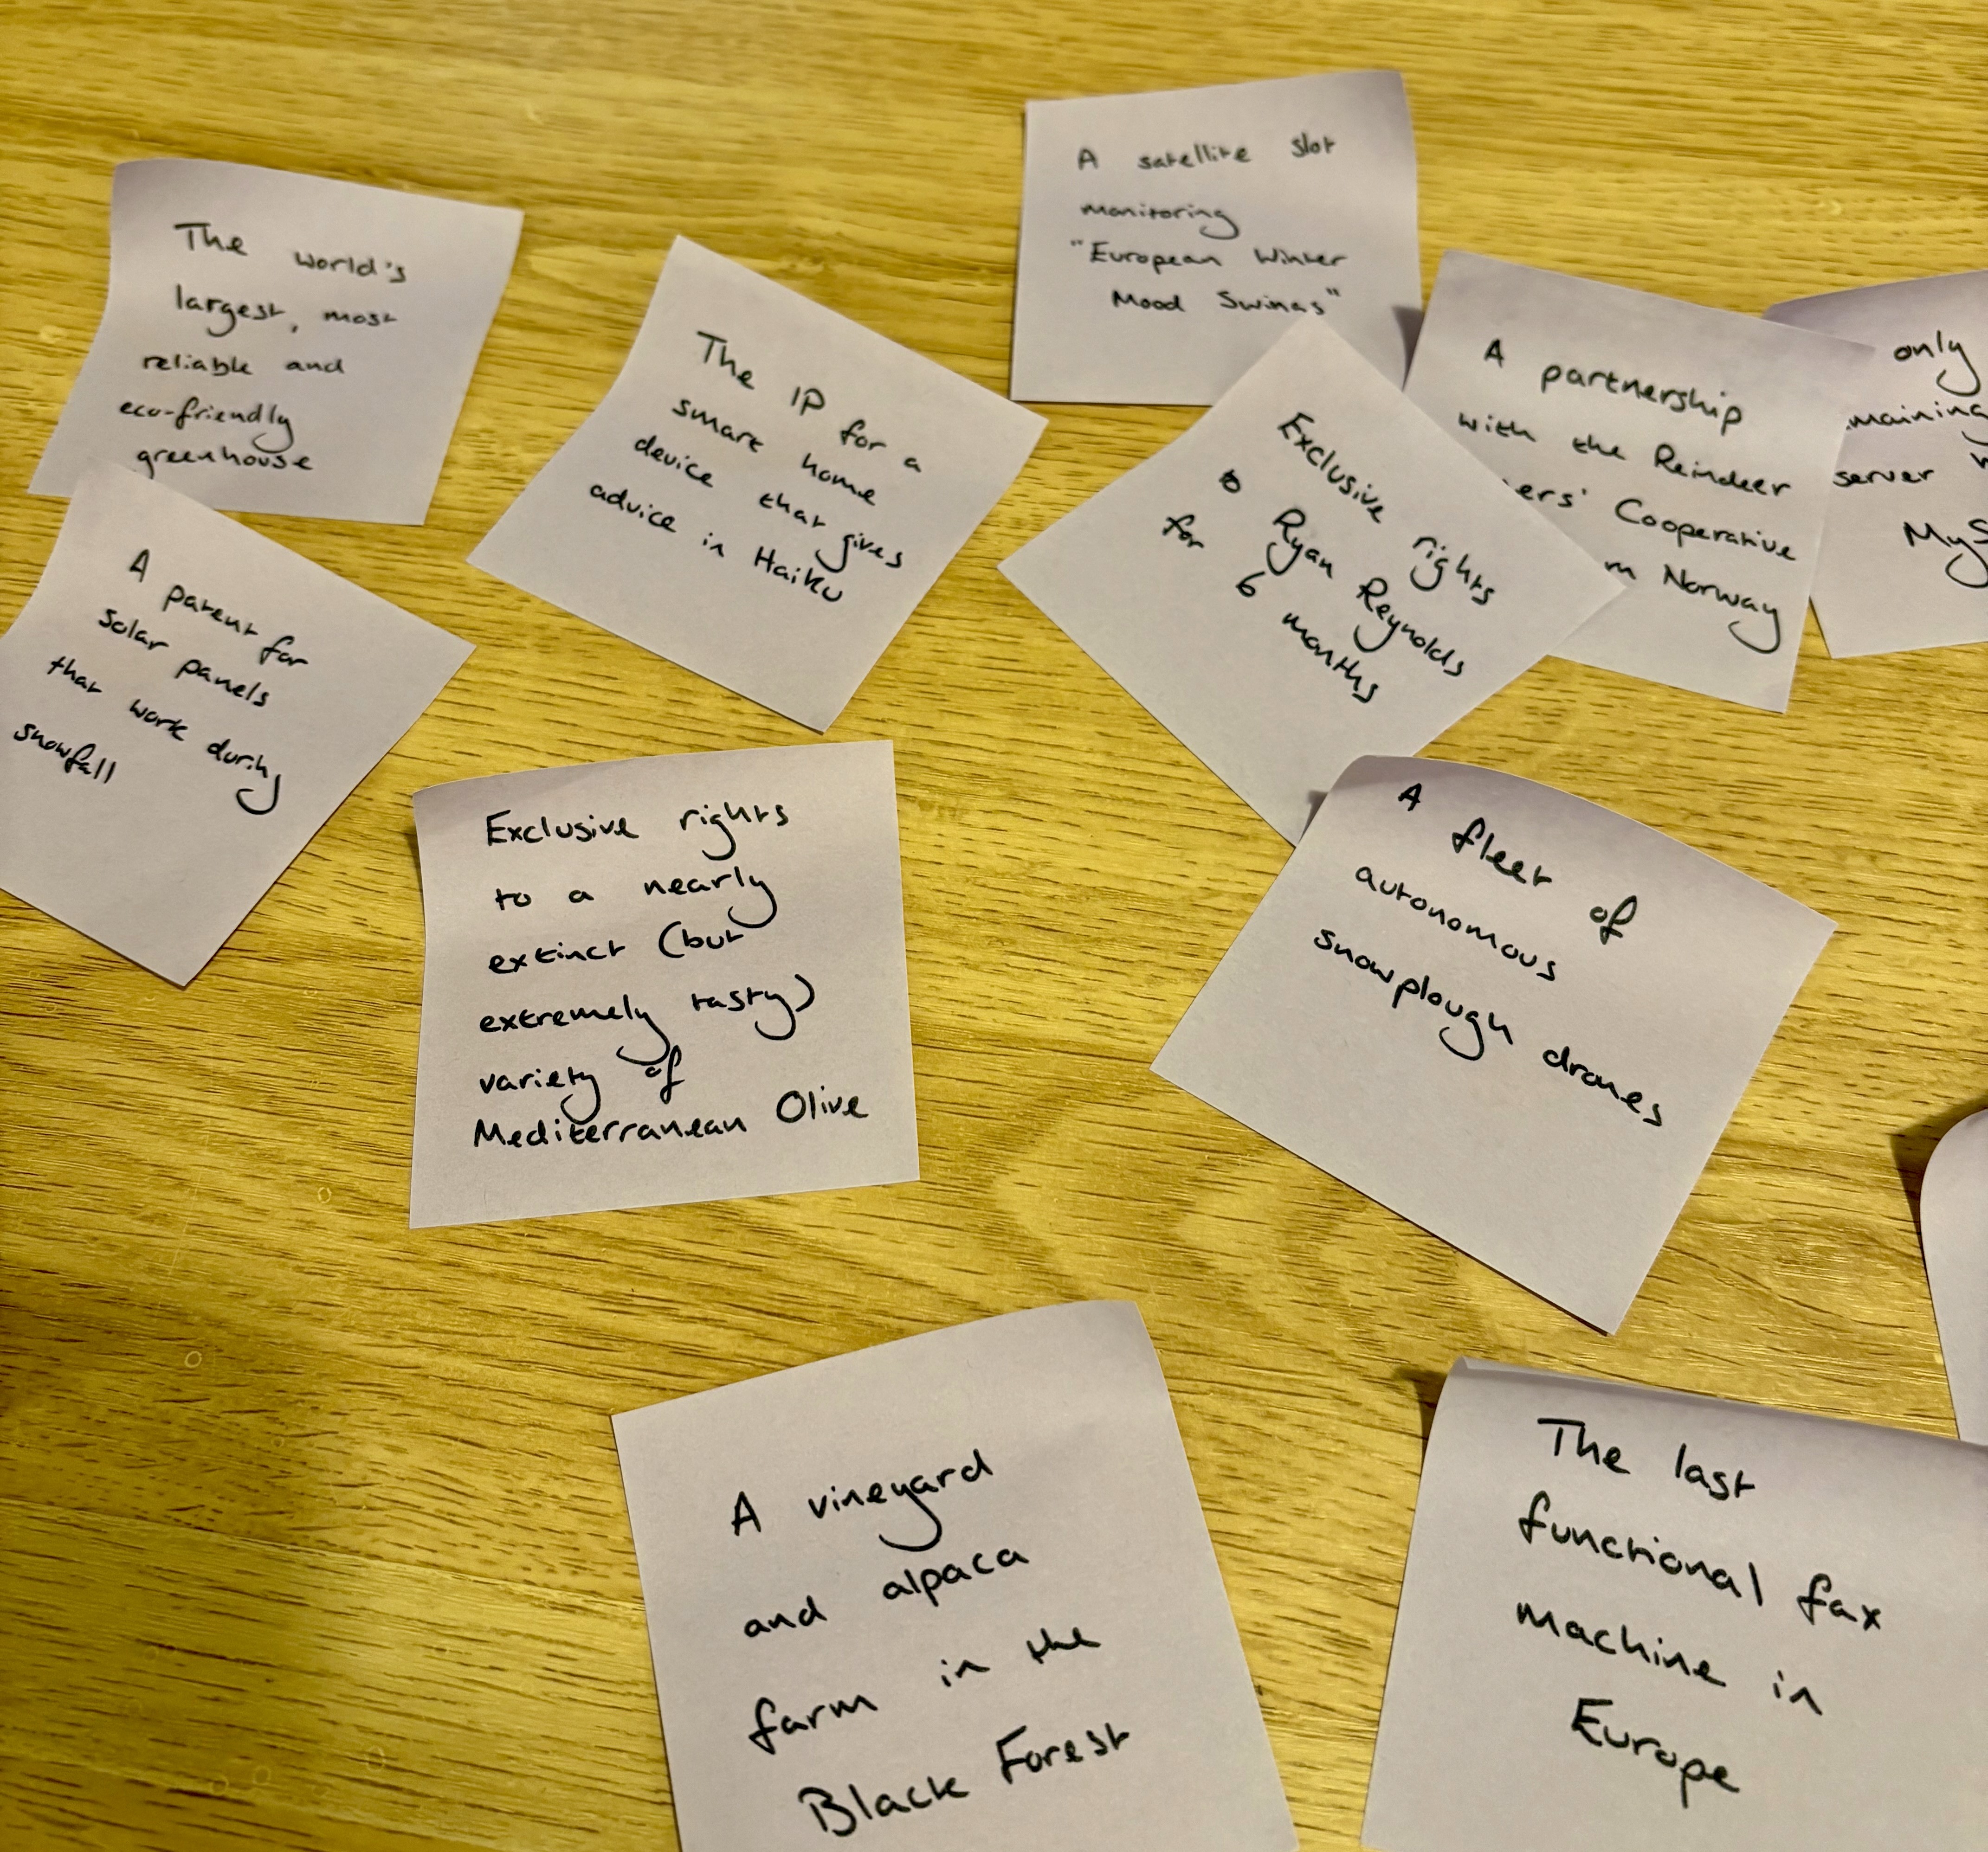 The world's
largest, most
reliable and
eco-friendly
greenhouse
The IP for a
smart home
device that gives
advice in Haiku
A satellite slot
monitoring
"European Winter
Mood Swings"
A partnership
with the Reindeer
Cooperative
Norway
only
server
Exclusive rights
Ryan Reynolds
for 6 months
A patent for
solar panels
that work during
snowfall
Exclusive rights
to a nearly
extinct (but
extremely tasty)
variety of
Mediterranean Olive
A fleet of
autonomous
snowplough drones
A vineyard
and alpaca
farm in the
Black Forest
The last
functional fax
machine in
Europe